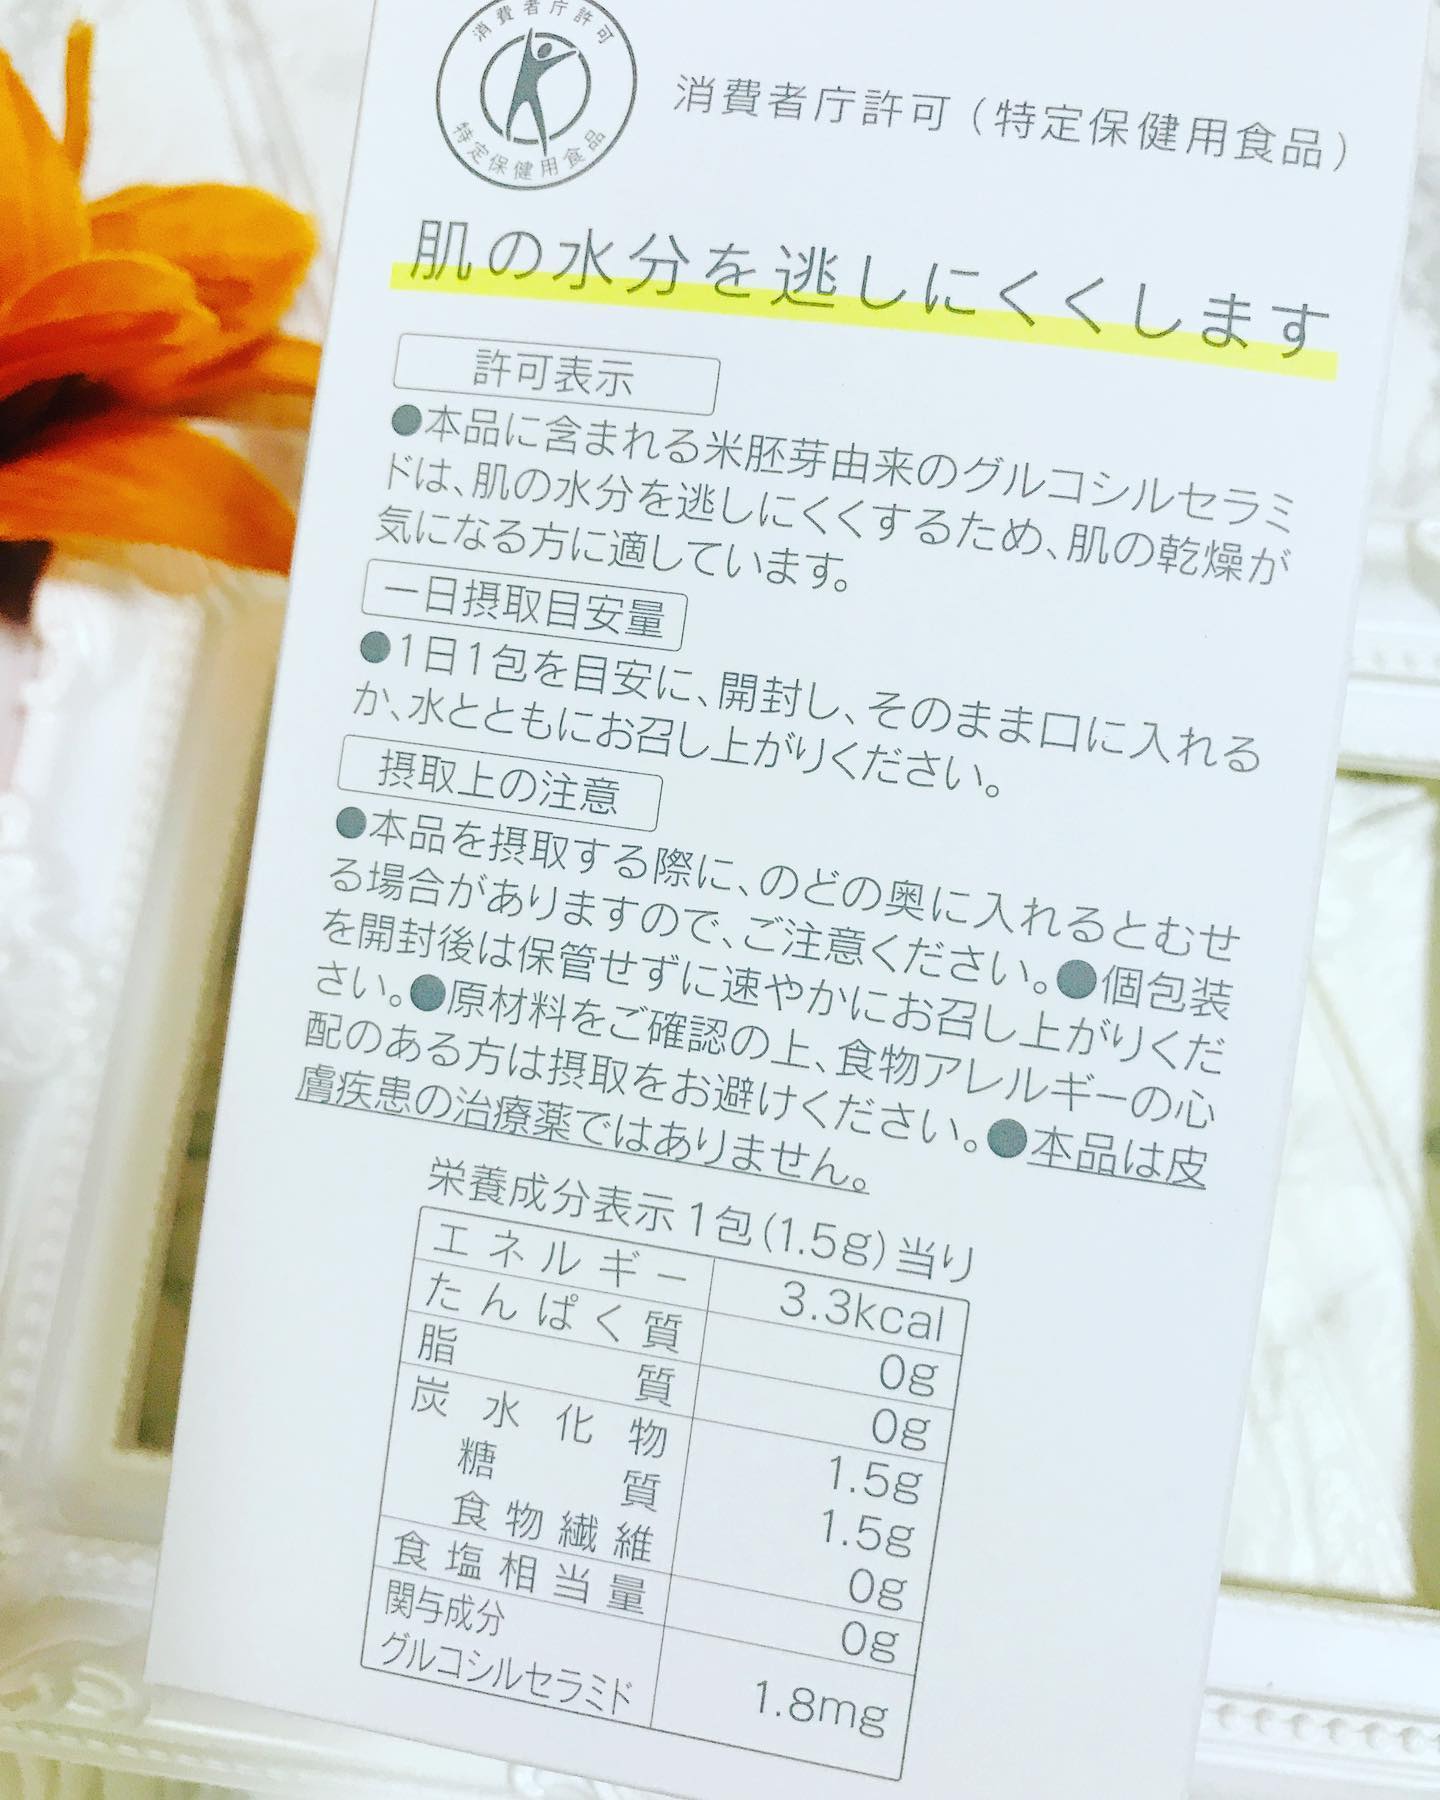 消費者庁許可
特定保健用食品
消費者庁許可（特定保健用食品）
肌の水分を逃しにくくします
許可表示
●本品に含まれる米胚芽由来のグルコシルセラミ
ドは、肌の水分を逃しにくくするため、肌の乾燥が
気になる方に適しています。
一日摂取目安量
●1日1包を目安に、開封し、そのまま口に入れる
か、水とともにお召し上がりください。
摂取上の注意
●本品を摂取する際に、のどの奥に入れるとむせ
る場合がありますので、ご注意ください。●個包装
を開封後は保管せずに速やかにお召し上がりくだ
さい。●原材料をご確認の上、食物アレルギーの心
配のある方は摂取をお避けください。●本品は皮
膚疾患の治療薬ではありません。
栄養成分表示1包(1.5g)当り
エネルギー 3.3kcal
たんぱく質 0g
脂質 0g
炭水化物 1.5g
糖質 1.5g
食物繊維 0g
食塩相当量 0g
関与成分
グルコシルセラミド 1.8mg